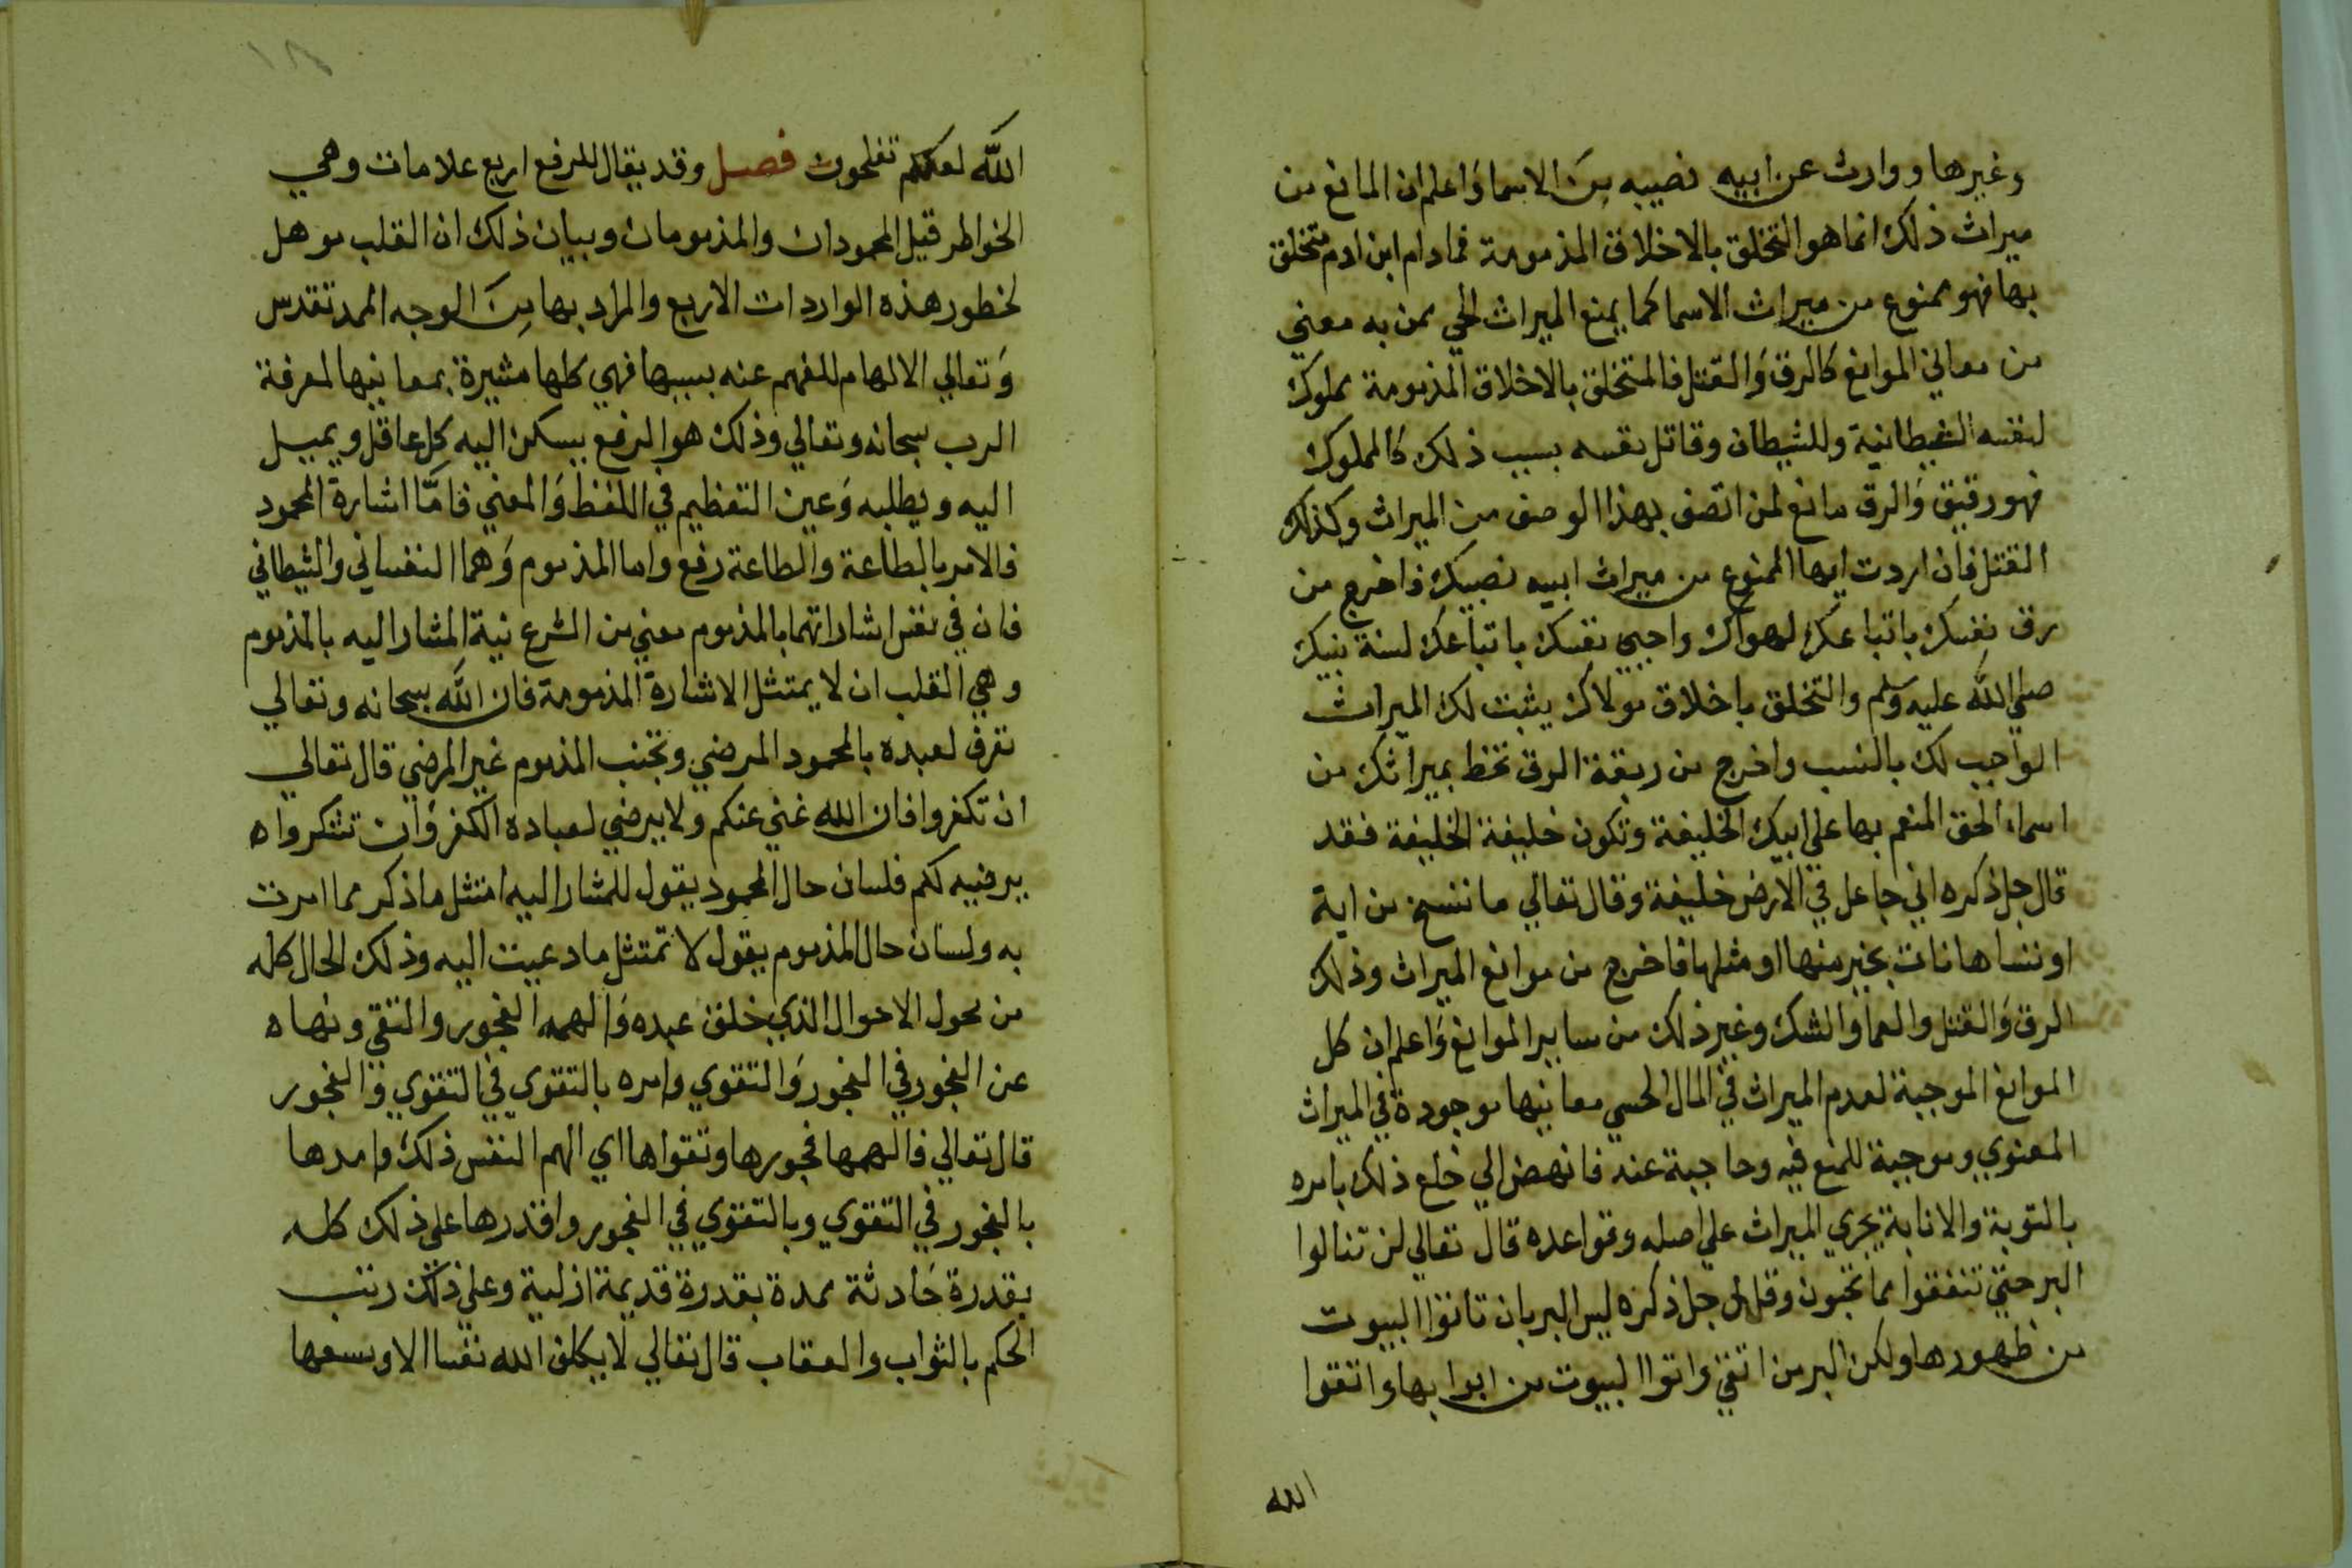 وغيرها ووارث عن ابيه نصيبه من الاسما واعلم ان المانع من
ميراث ذلك انما هو التخلق بالاخلاق المذمومة فما دام ابن ادم متخلق
بها فهو ممنوع من ميراث الاسما كما يمنع الميراث الحي من به معني
من معاني الموانع كالرق والقتل فالمتخلق بالاخلاق المذمومة مملوك
لنفسه الشيطانية وللشيطان وقاتل نفسه بسبب ذلك كالمملوك
فهو رقيق والرق مانع لمن اتصف بهذا الوصف من الميراث وكذلك
القتل فان اردت ايها الممنوع من ميراث ابيه نصيبك فاخرج من
رق نفسك باتباعك لهواك واحيي نفسك باتباعك لسنة نبيك
صلي الله عليه وسلم والتخلق باخلاق مولاك يثبت لك الميراث
الواجب لك بالنسب واخرج من ربقة الرق تحظ بميراثك من
اسماء الحق المنعم بها علي ابيك الخليفة وتكون خليفة الخليفة فقد
قال جل ذكره اني جاعل في الارض خليفة وقال تعالي ما ننسخ من اية
او ننساها نات بخير منها او مثلها فاخرج من موانع الميراث وذلك
الرق والقتل والعما والشك وغير ذلك من ساير الموانع واعلم ان كل
الموانع الموجبة لعدم الميراث في المال الحسي معانيها موجودة في الميراث
المعنوي وموجبة للمنع فيه وحاجبة عنه فانهض الي خلع ذلك بامره
بالتوبة والانابة يجري الميراث علي اصله وقواعده قال تعالي لن تنالوا
البر حتي تنفقوا مما تحبون وقال جل ذكره ليس البر بان تاتوا البيوت
من ظهورها ولكن البر من اتقي واتوا البيوت من ابوابها واتقوا
الله
الله لعلكم تفلحون فصل وقد يقال للرفع اربع علامات وهي
الخواطر قيل المحمودات والمذمومات وبيان ذلك ان القلب موهل
لخطور هذه الواردات الاربع والمراد بها من الوجه الممد تقدس
وتعالي الالهام للفهم عنه بسببها فهي كلها مشيرة بمعانيها لمعرفة
الرب سبحانه وتعالي وذلك هو الرفع يسكن اليه كل عاقل ويميل
اليه ويطلبه وعين التعظيم في اللفظ والمعني فامّا اشارة المحمود
فالامر بالطاعة والطاعة رفع واما المذموم وهما النفساني والشيطاني
فان في نفس اشاراتهما بالمذموم معني من الشرع نية المشار اليه بالمذموم
وهي القلب ان لا يمتثل الاشارة المذمومة فان الله سبحانه وتعالي
تعرف لعبده بالمحمود المرضي وتجنب المذموم غير المرضي قال تعالي
ان تكفروا فان الله غني عنكم ولا يرضي لعباده الكفر وان تشكروا ه
يرضيه لكم فلسان حال المحمود يقول للمشار اليه امتثل ما ذكر مما امرت
به ولسان حال المذموم يقول لا تمتثل ما دعيت اليه وذلك الحال كله
من محول الاحوال الذي خلق عبده والهمه الفجور والتقي ونهاه
عن الفجور في الفجور والتقوي وامره بالتقوي في التقوي والفجور
قال تعالي فالهمها فجورها وتقواها اي الهم النفس ذلك وامدها
بالفجور في التقوي وبالتقوي في الفجور واقدرها علي ذلك كله
بقدرة حادثة ممدة بقدرة قديمة ازلية وعلي ذلك رتب
الحكم بالثواب والعقاب قال تعالي لا يكلف الله نفسا الا وسعها